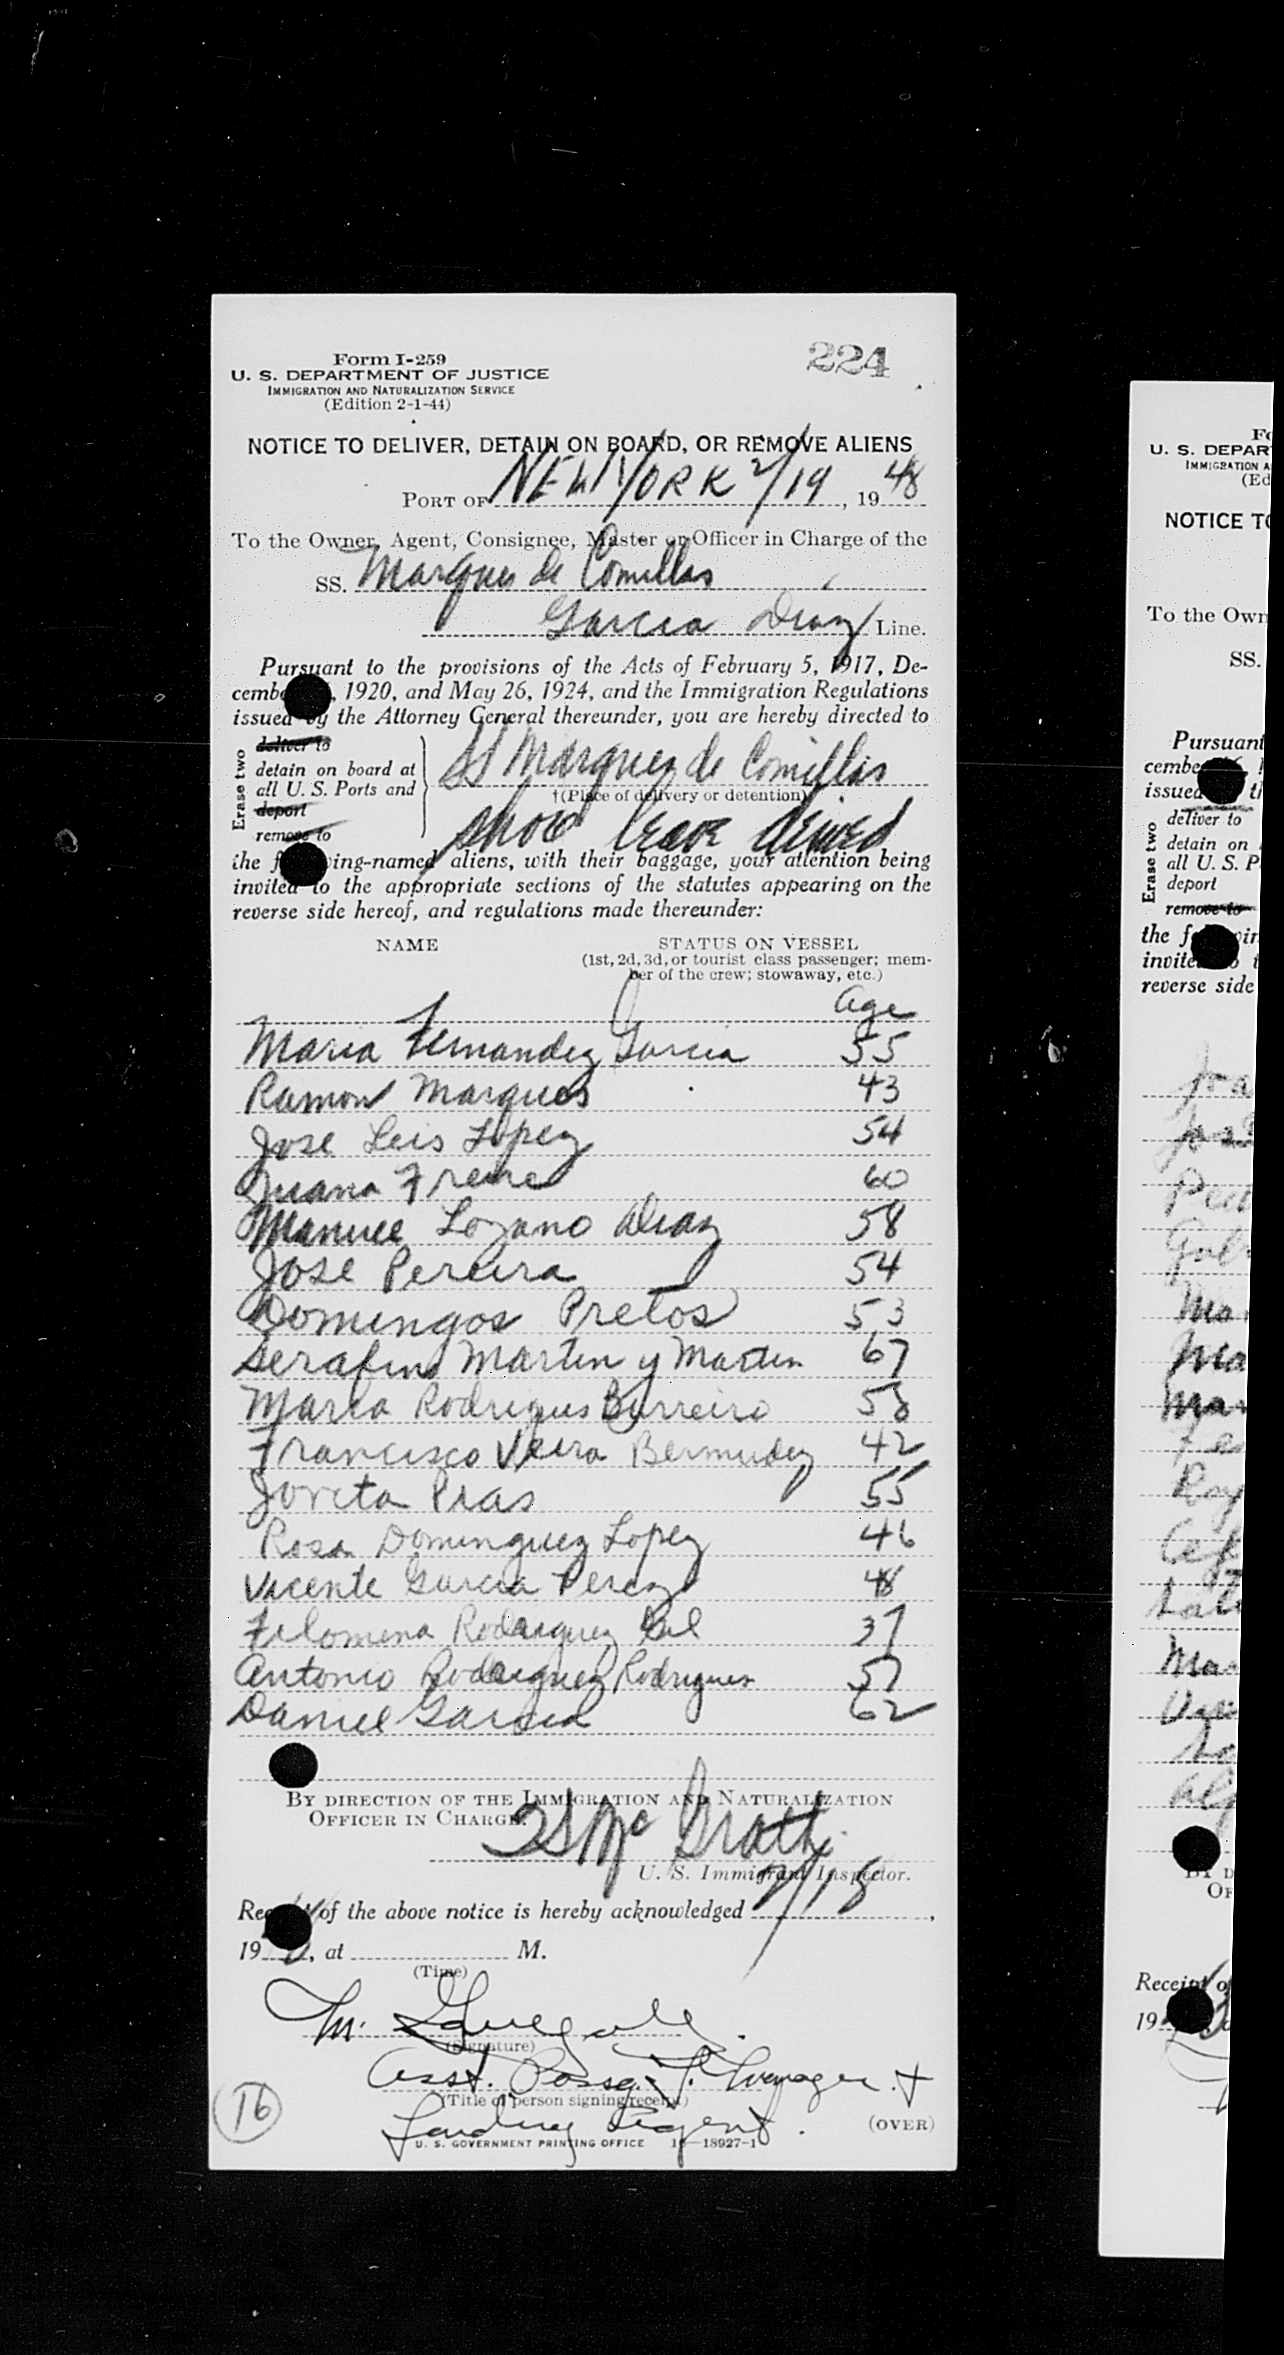 Form I-259
U. S. DEPARTMENT OF JUSTICE
IMMIGRATION AND NATURALIZATION SERVICE
(Edition 2-1-44)
224
NOTICE TO DELIVER, DETAIN ON BOARD, OR REMOVE ALIENS
PORT OF NEW YORK 2/19, 1948
To the Owner, Agent, Consignee, Master or Officer in Charge of the
SS. Marques de Comillas
Garcia Diaz Line.
Pursuant to the provisions of the Acts of February 5, 1917, De-
cemb , 1920, and May 26, 1924, and the Immigration Regulations
issued by the Attorney General thereunder, you are hereby directed to
Erase two
deliver to
detain on board at
all U. S. Ports and
deport
remove to
SS Marques de Comillas
†(Place of delivery or detention)
shore leave denied
the f ing-named aliens, with their baggage, your attention being
invited to the appropriate sections of the statutes appearing on the
reverse side hereof, and regulations made thereunder:
NAME STATUS ON VESSEL
(1st, 2d, 3d, or tourist class passenger; mem-
ber of the crew; stowaway, etc.)
Age
Maria Fernandez Garcia 55
Ramon Marques 43
Jose Luis Lopez 54
Juana Freire 60
Manuel Lozano Diaz 58
Jose Pereira 54
Domingos Pretos 53
Serafino Martin y Martin 67
Maria Rodrigues Barreiro 58
Francisco Vieira Bermudez 42
Jovita Pias 55
Rosa Dominguez Lopez 46
Vicente Garcia Perez 48
Filomena Rodriguez Gil 37
Antonio Rodriguez Rodriguez 57
Daniel Garcia 62
BY DIRECTION OF THE IMMIGRATION AND NATURALIZATION
OFFICER IN CHARGE.
McGrath
U. S. Immigrant Inspector.
Rec of the above notice is hereby acknowledged 2/18,
19 , at M.
(Time)
(Signature)
Asst. Passg. T. Manager. +
(Title of person signing receipt)
Landing Agent.
(OVER)
U. S. GOVERNMENT PRINTING OFFICE 16—18927-1
16
U. S. DEPAR
IMMIGRATION A
(Ed
NOTICE TO
To the Own
SS.
Pursuant
cembe
issued
Erase two
deliver to
detain on
all U. S. P
deport
remove to
the f
invite
reverse side
Receipt o
19